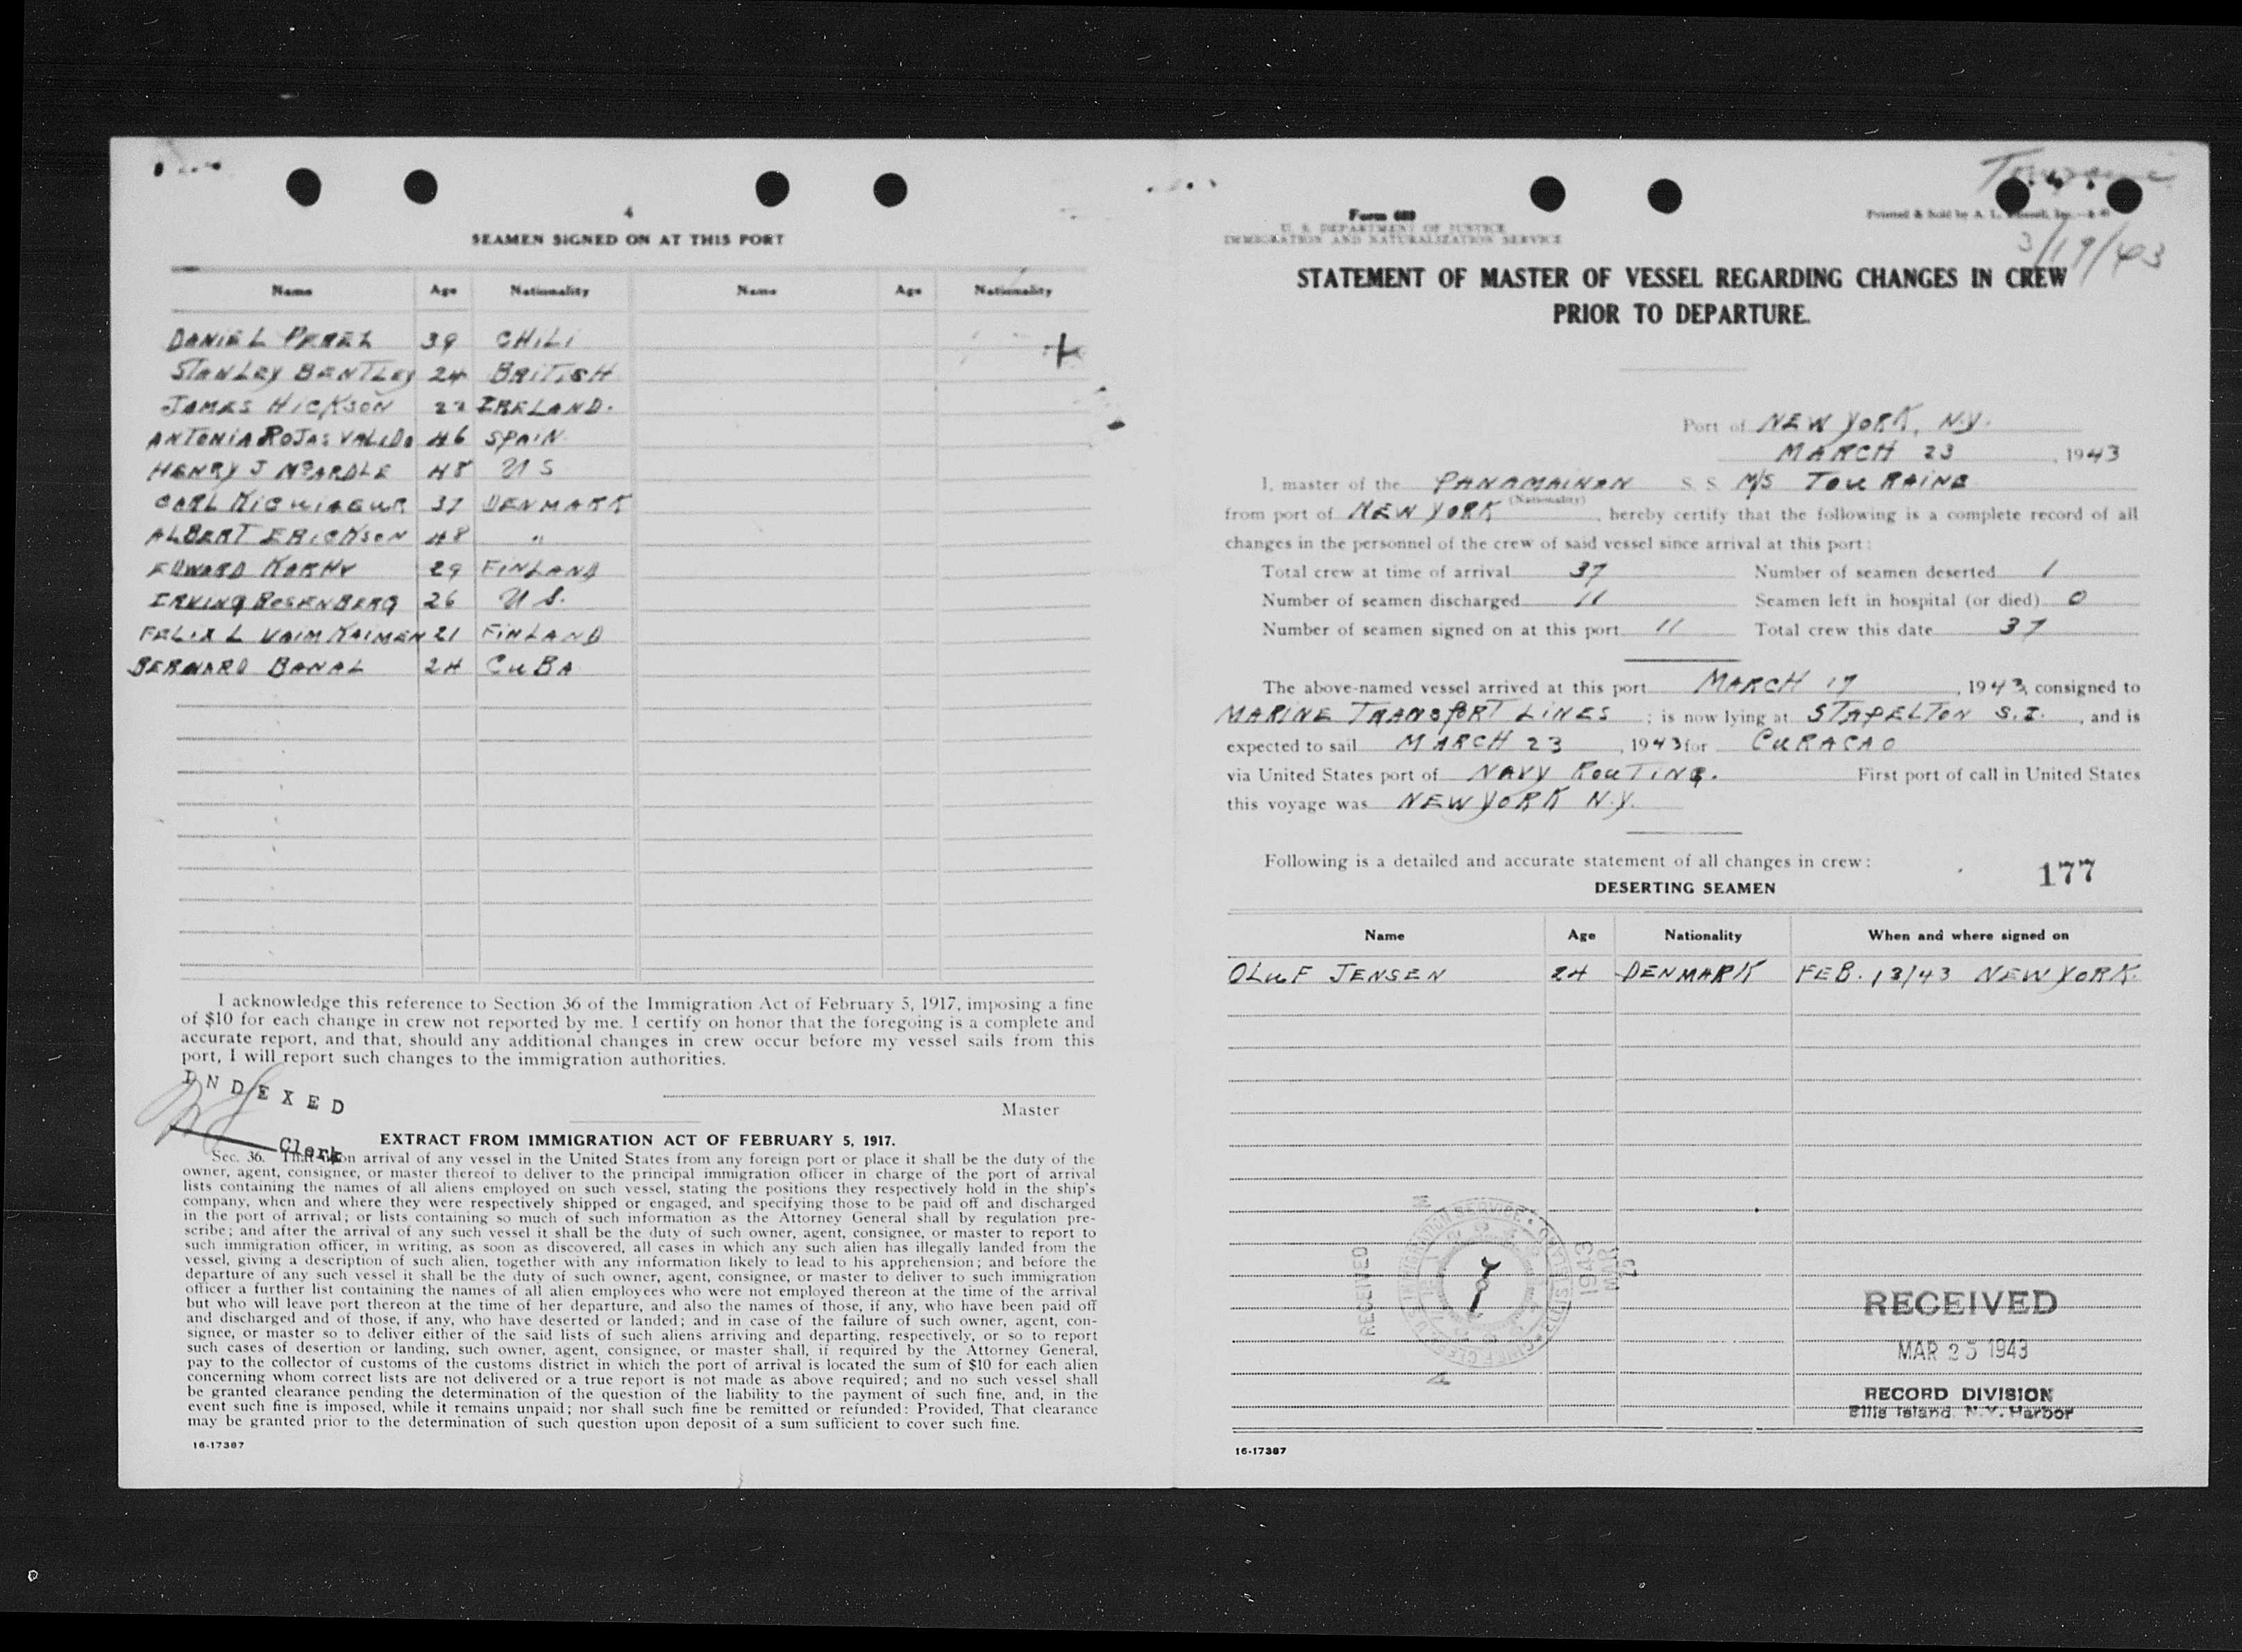 4
SEAMEN SIGNED ON AT THIS PORT
Name Age Nationality Name Age Nationality
DANIEL PEREZ 39 CHILI
STANLEY BENTLEY 24 BRITISH
JAMES HICKSON 22 IRELAND.
ANTONIA ROJAS VALIDO 46 SPAIN
HENRY J McARDLE 48 U S
CARL 37 DENMARK
ALBERT ERICKSON 48 "
EDWARD KARHV 29 FINLAND
IRVING ROSENBERG 26 U S.
FELIX L VAIMKAIMEN 21 FINLAND
BERNARD BANAL 24 CUBA
I acknowledge this reference to Section 36 of the Immigration Act of February 5, 1917, imposing a fine
of $10 for each change in crew not reported by me. I certify on honor that the foregoing is a complete and
accurate report, and that, should any additional changes in crew occur before my vessel sails from this
port, I will report such changes to the immigration authorities.
INDEXED
Master
Clerk
EXTRACT FROM IMMIGRATION ACT OF FEBRUARY 5, 1917.
Sec. 36. That upon arrival of any vessel in the United States from any foreign port or place it shall be the duty of the
owner, agent, consignee, or master thereof to deliver to the principal immigration officer in charge of the port of arrival
lists containing the names of all aliens employed on such vessel, stating the positions they respectively hold in the ship's
company, when and where they were respectively shipped or engaged, and specifying those to be paid off and discharged
in the port of arrival; or lists containing so much of such information as the Attorney General shall by regulation pre-
scribe; and after the arrival of any such vessel it shall be the duty of such owner, agent, consignee, or master to report to
such immigration officer, in writing, as soon as discovered, all cases in which any such alien has illegally landed from the
vessel, giving a description of such alien, together with any information likely to lead to his apprehension; and before the
departure of any such vessel it shall be the duty of such owner, agent, consignee, or master to deliver to such immigration
officer a further list containing the names of all alien employees who were not employed thereon at the time of the arrival
but who will leave port thereon at the time of her departure, and also the names of those, if any, who have been paid off
and discharged and of those, if any, who have deserted or landed; and in case of the failure of such owner, agent, con-
signee, or master so to deliver either of the said lists of such aliens arriving and departing, respectively, or so to report
such cases of desertion or landing, such owner, agent, consignee, or master shall, if required by the Attorney General,
pay to the collector of customs of the customs district in which the port of arrival is located the sum of $10 for each alien
concerning whom correct lists are not delivered or a true report is not made as above required; and no such vessel shall
be granted clearance pending the determination of the question of the liability to the payment of such fine, and, in the
event such fine is imposed, while it remains unpaid; nor shall such fine be remitted or refunded: Provided, That clearance
may be granted prior to the determination of such question upon deposit of a sum sufficient to cover such fine.
16-17387
Touraine
Form 689
U. S. DEPARTMENT OF JUSTICE
IMMIGRATION AND NATURALIZATION SERVICE
Printed & Sold by A. L.
3/19/43
STATEMENT OF MASTER OF VESSEL REGARDING CHANGES IN CREW
PRIOR TO DEPARTURE.
Port of NEW YORK, N.Y.
MARCH 23, 1943
I, master of the PANAMAINAN S. S. M/S TOURAINE
(Nationality)
from port of NEW YORK, hereby certify that the following is a complete record of all
changes in the personnel of the crew of said vessel since arrival at this port:
Total crew at time of arrival 37 Number of seamen deserted 1
Number of seamen discharged 11 Seamen left in hospital (or died) 0
Number of seamen signed on at this port 11 Total crew this date 37
The above-named vessel arrived at this port MARCH 19, 1943, consigned to
MARINE TRANSPORT LINES; is now lying at STAPELTON S.I., and is
expected to sail MARCH 23, 1943 for CURACAO
via United States port of NAVY ROUTING. First port of call in United States
this voyage was NEW YORK N.Y.
Following is a detailed and accurate statement of all changes in crew:
177
DESERTING SEAMEN
Name Age Nationality When and where signed on
OLUF JENSEN 24 DENMARK FEB. 13/43 NEW YORK.
RECEIVED
1943 MAR
RECEIVED
MAR 25 1943
RECORD DIVISION
Ellis Island, N.Y. Harbor
16-17387